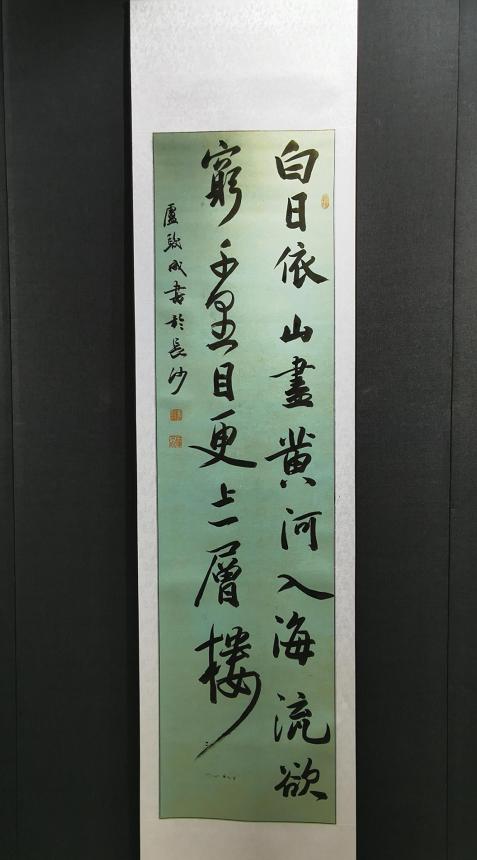 白日依山盡黄河入海流欲
窮千里目更上一層樓
盧啟成書於長沙